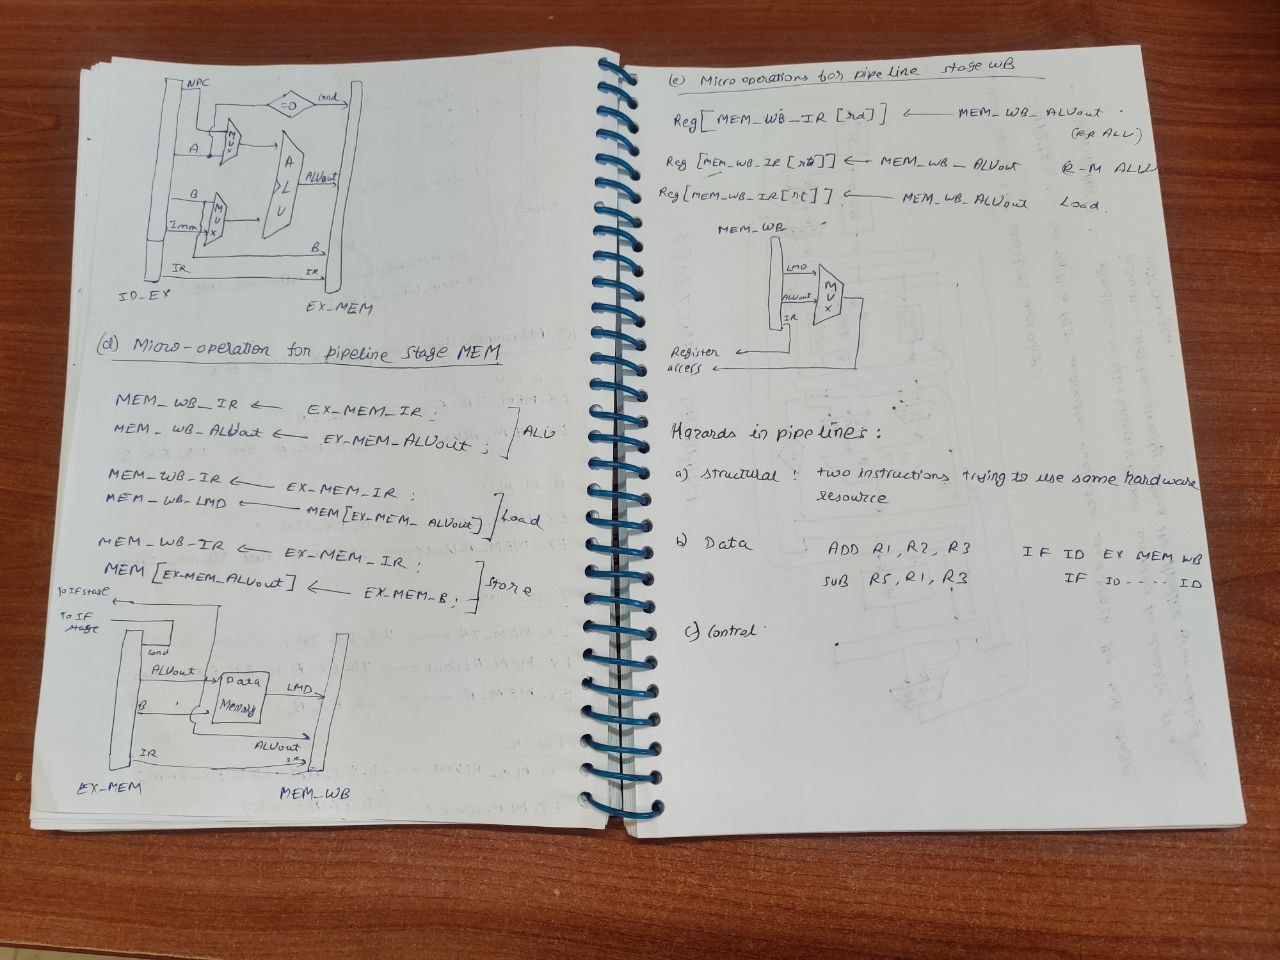 NPC
cond
=0
MUX
A
ALU
ALUout
B
MUX
Imm
B
IR
IR
ID_EX
EX_MEM
(d) Micro-operation for pipeline stage MEM
MEM_WB_IR ← EX_MEM_IR ;
MEM_WB_ALUout ← EX_MEM_ALUout ; ] ALU
MEM_WB_IR ← EX_MEM_IR ;
MEM_WB_LMD ← MEM[EX_MEM_ALUout] ] Load
MEM_WB_IR ← EX_MEM_IR ;
MEM [EX_MEM_ALUout] ← EX_MEM_B ; ] Store
To IF stage
To IF
stage
cond
ALUout
Data
Memory
LMD
B
ALUout
IR
IR
EX_MEM
MEM_WB
(e) Micro operations for pipe line stage WB
Reg[MEM_WB_IR [rd]] ← MEM_WB_ALUout
(RR ALU)
Reg [MEM_WB_IR [rt]] ← MEM_WB_ALUout R-M ALU
Reg[MEM_WB_IR[rt]] ← MEM_WB_ALUout Load.
MEM_WB
LMD
MUX
ALUout
IR
Register
access
Hazards in pipelines :
a) structural : two instructions trying to use same hardware
resource
b) Data : ADD R1, R2, R3 IF ID EX MEM WB
SUB R5, R1, R3 IF ID ..... ID
c) control.